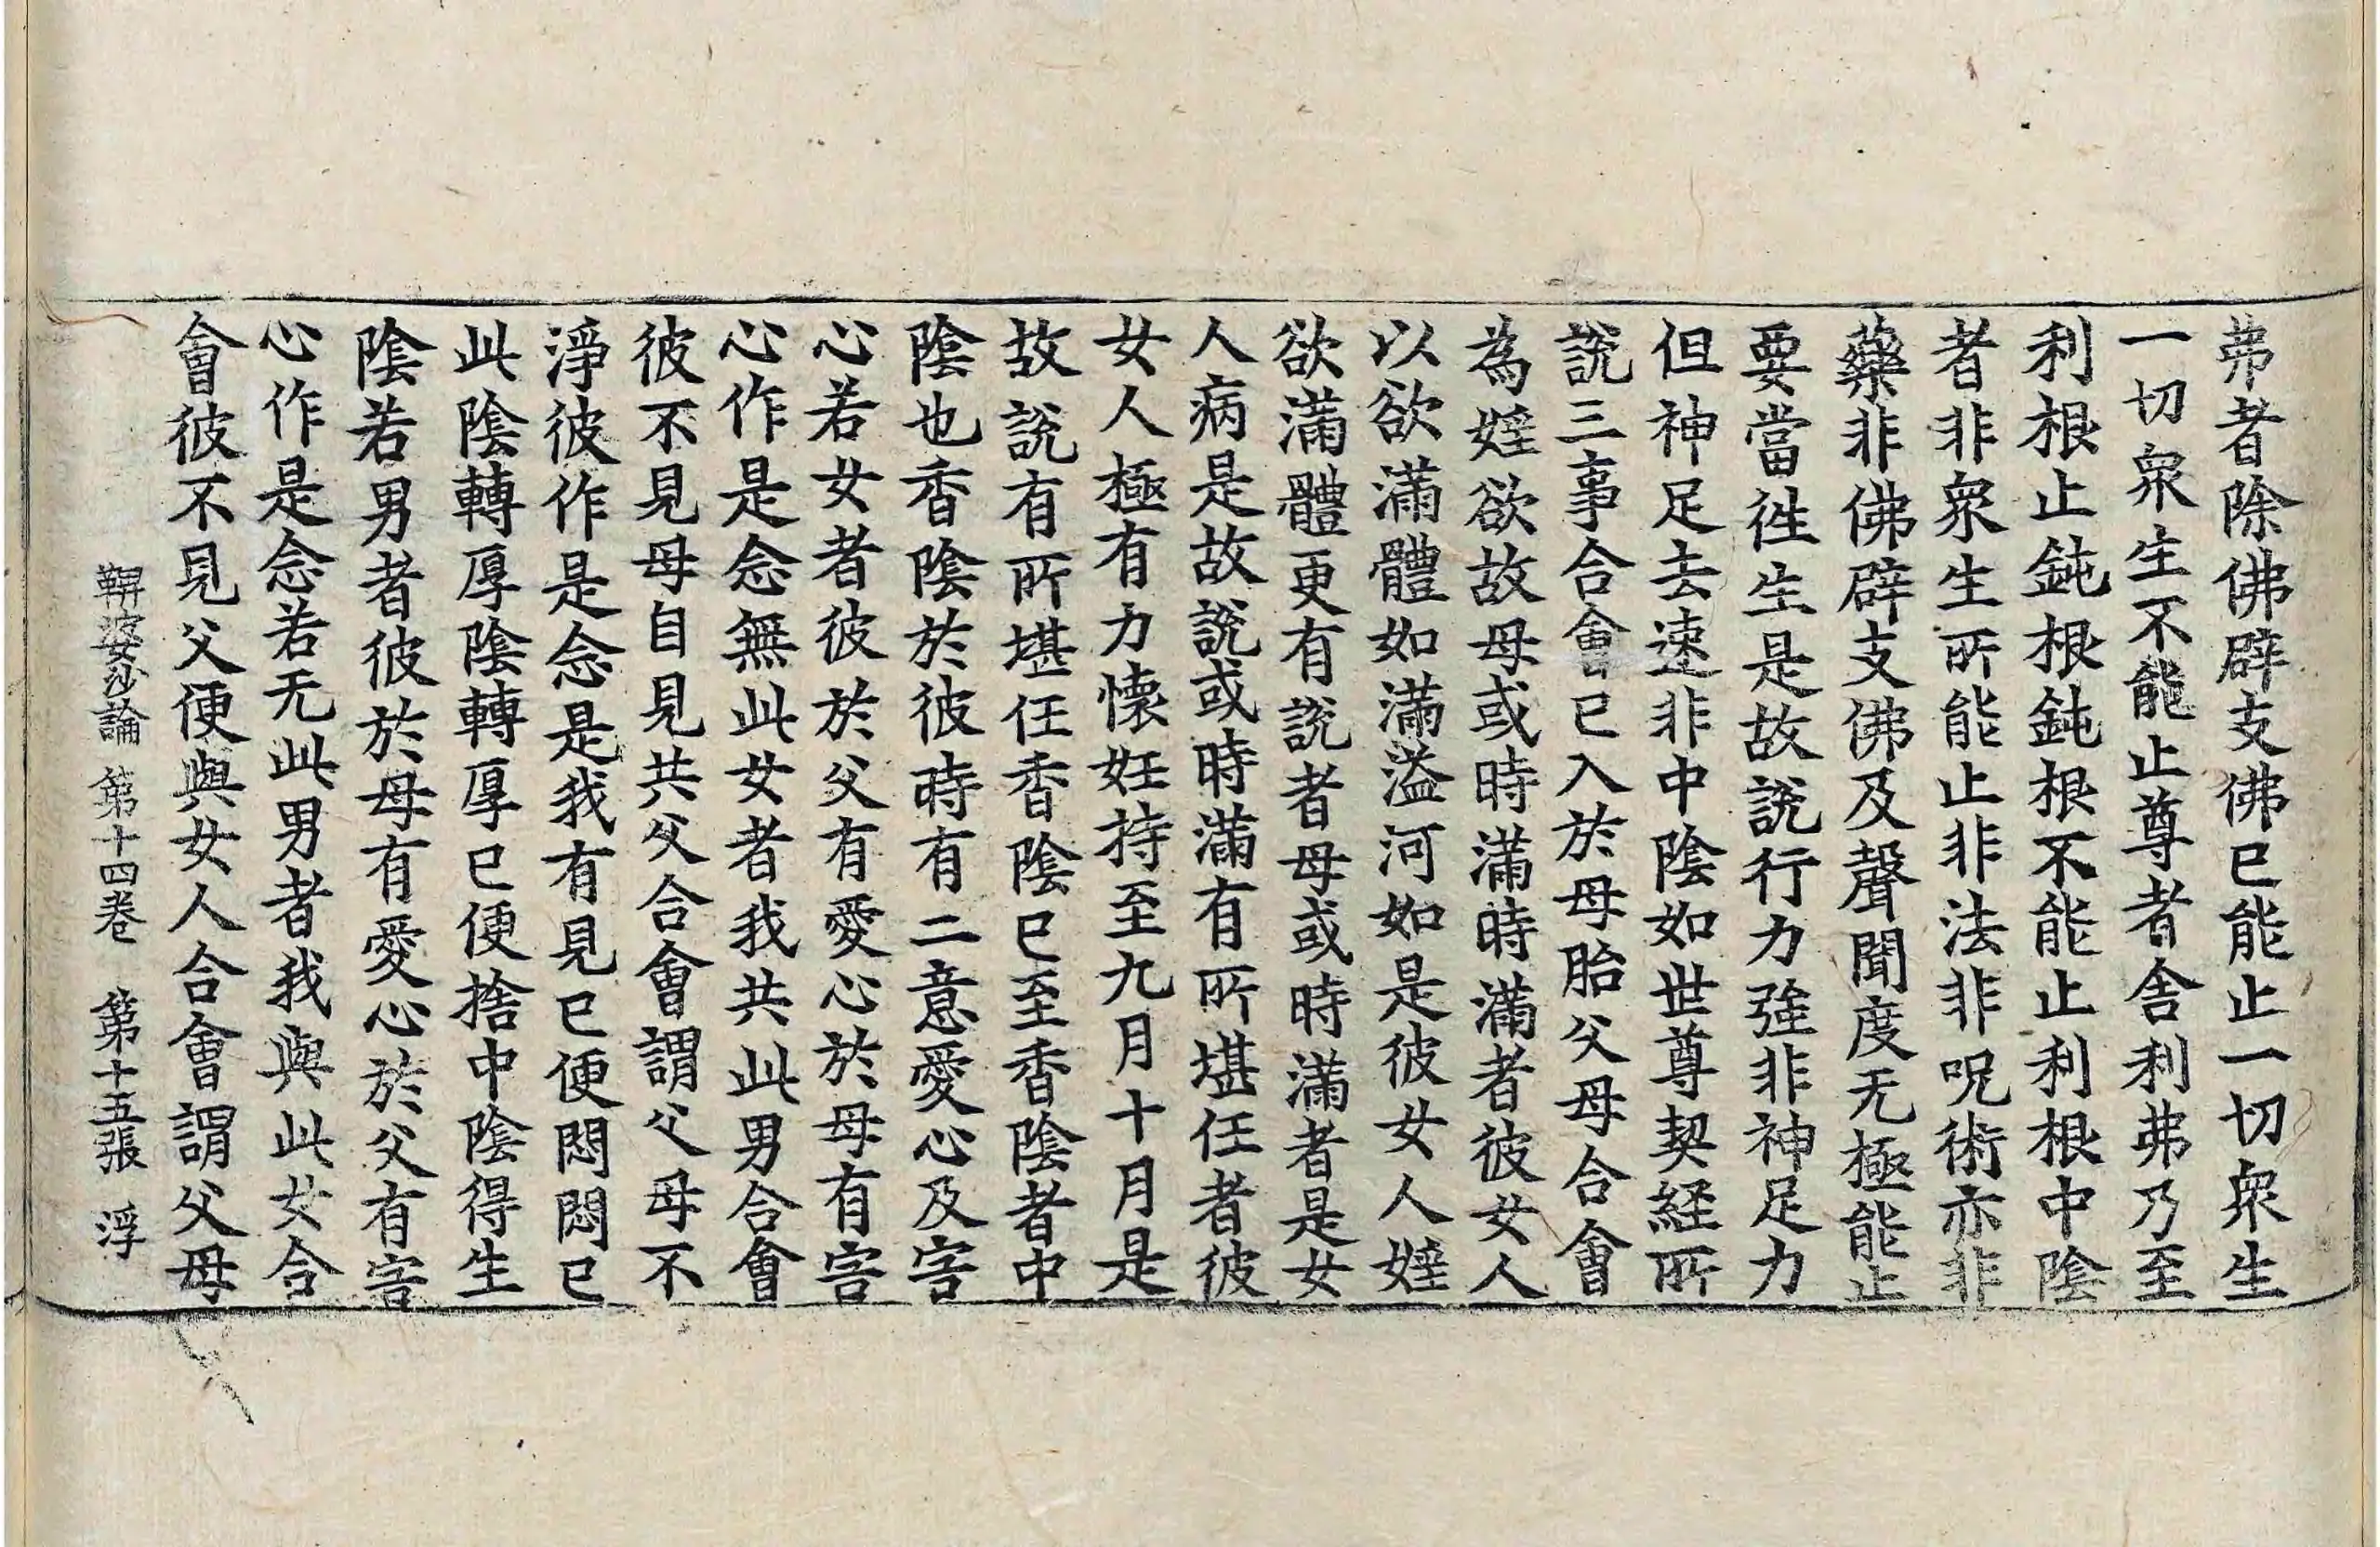 弗者除佛辟支佛已能止一切衆生
一切衆生不能止尊者舍利弗乃至
利根止鈍根鈍根不能止利根中陰
者非衆生所能止非法非呪術亦非
藥非佛辟支佛及聲聞度无極能止
要當徃生是故說行力強非神足力
但神足去速非中陰如世尊契経所
說三事合會已入於母胎父母合會
為婬欲故母或時滿時滿者彼女人
以欲滿體如滿溢河如是彼女人婬
欲滿體更有說者母或時滿者是女
人病是故說或時滿有所堪任者彼
女人極有力懷妊持至九月十月是
故說有所堪任香陰已至香陰者中
陰也香陰於彼時有二意愛心及害
心若女者彼於父有愛心於母有害
心作是念無此女者我共此男合會
彼不見母自見共父合會謂父母不
淨彼作是念是我有見已便悶悶已
此陰轉厚陰轉厚已便捨中陰得生
陰若男者彼於母有愛心於父有害
心作是念若无此男者我與此女合
會彼不見父便與女人合會謂父母
鞞婆沙論 第十四卷 第十五張 浮